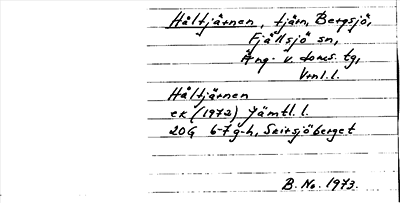 Håltjärnen, tjärn, Bergsjö,
Fjällsjö sn,
Ång. v. doms. tg,
Vrnl. l.
Håltjärnen
ek (1972) Jämtl. l.
20G 6-7 g-h, Sairsjöberget
B. No. 1973.